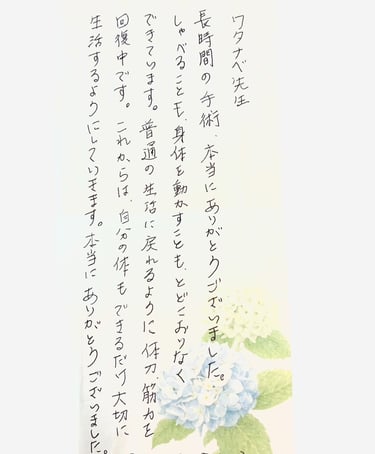 ワタナベ先生
長時間の手術、本当にありがとうございました。
しゃべることも、身体を動かすことも、とどこおりなく
できています。普通の生活に戻れるように体力、筋力を
回復中です。これからは、自分の体もできるだけ大切に
生活するようにしていきます。本当にありがとうございました。